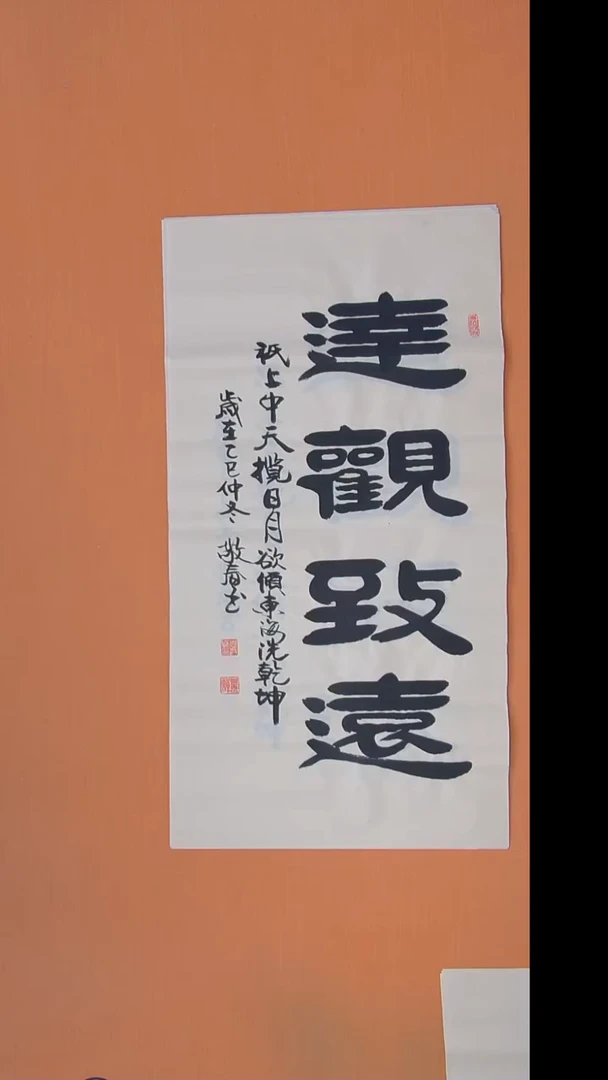 達觀致遠
祇上中天攬日月欲傾東海洗乾坤
歲在乙巳仲冬 敬春书